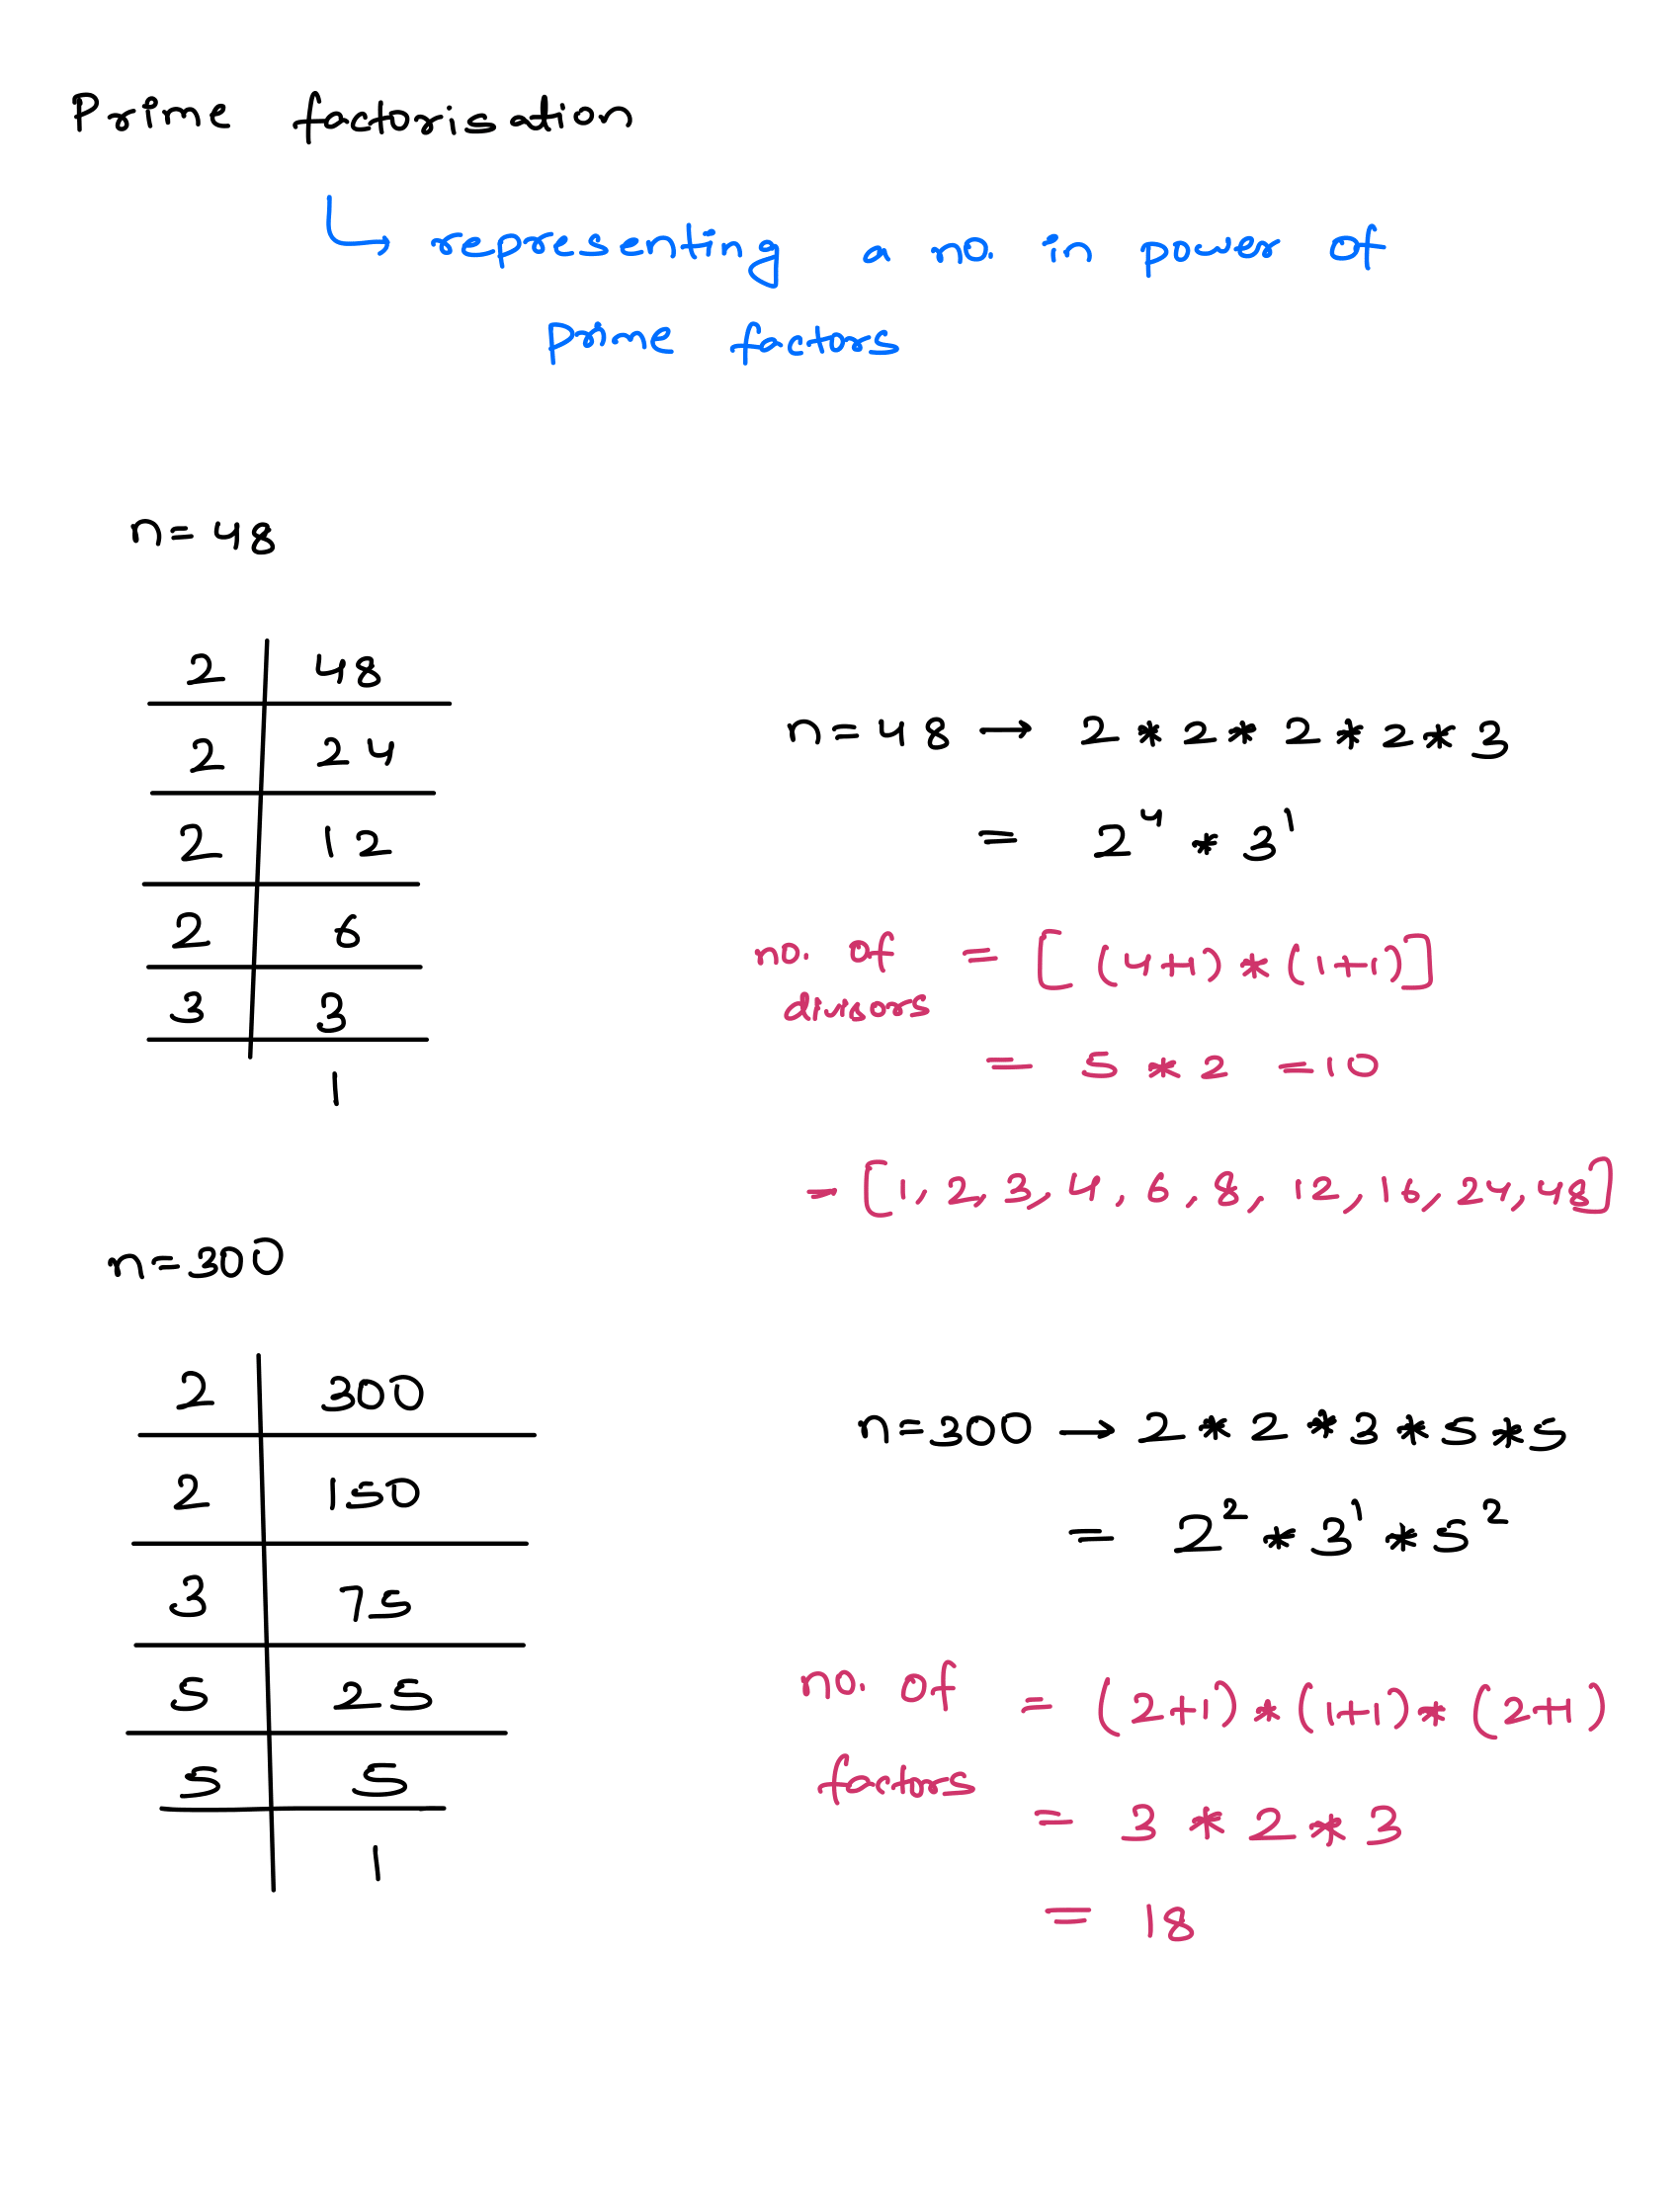 Prime factorisation
representing a no. in power of
prime factors
n=48
2 | 48
2 | 24
2 | 12
2 | 6
3 | 3
1
n=48 → 2 * 2 * 2 * 2 * 3
= 2⁴ * 3¹
no. of divisors = [(4+1) * (1+1)]
= 5 * 2 = 10
- [1, 2, 3, 4, 6, 8, 12, 16, 24, 48]
n=300
2 | 300
2 | 150
3 | 75
5 | 25
5 | 5
1
n=300 → 2 * 2 * 3 * 5 * 5
= 2² * 3¹ * 5²
no. of factors = (2+1) * (1+1) * (2+1)
= 3 * 2 * 3
= 18